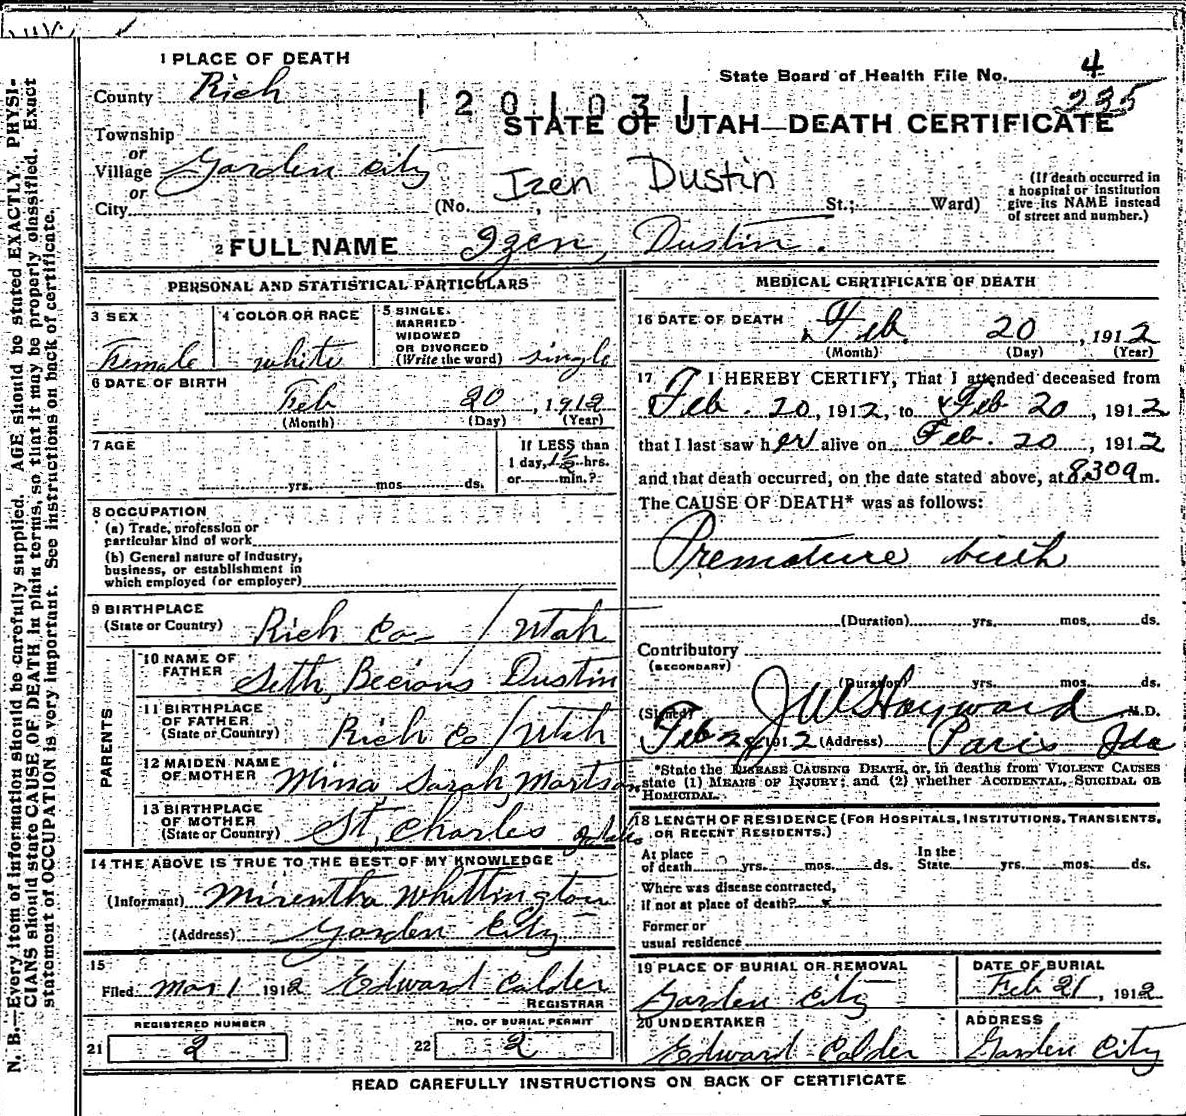 1 PLACE OF DEATH
County Rich
State Board of Health File No. 4
235
1201031
STATE OF UTAH—DEATH CERTIFICATE
Township
or
Village Garden City
or
City (No. , St.; Ward)
Izen Dustin
(If death occurred in a hospital or institution give its NAME instead of street and number.)
2 FULL NAME Izen, Dustin.
PERSONAL AND STATISTICAL PARTICULARS
3 SEX
Female
4 COLOR OR RACE
white
5 SINGLE, MARRIED WIDOWED OR DIVORCED
(Write the word) single
6 DATE OF BIRTH
Feb 20, 1912
(Month) (Day) (Year)
7 AGE
yrs. mos ds.
If LESS than
1 day, hrs.
or min.?
8 OCCUPATION
(a) Trade, profession or
particular kind of work
(b) General nature of industry,
business, or establishment in
which employed (or employer)
9 BIRTHPLACE
(State or Country) Rich Co / Utah
PARENTS
10 NAME OF
FATHER Seth Dustin
11 BIRTHPLACE
OF FATHER
(State or Country) Rich Co / Utah
12 MAIDEN NAME
OF MOTHER Mina Sarah
13 BIRTHPLACE
OF MOTHER
(State or Country) St, Charles Idaho
14 THE ABOVE IS TRUE TO THE BEST OF MY KNOWLEDGE
(Informant) Whittington
(Address) Garden City
15
Filed Mar 1 1912 Edward Calder
REGISTRAR
REGISTERED NUMBER
21 2
NO. OF BURIAL PERMIT
22 2
MEDICAL CERTIFICATE OF DEATH
16 DATE OF DEATH Feb. 20, 1912
(Month) (Day) (Year)
17 I HEREBY CERTIFY, That I attended deceased from
Feb. 20, 1912, to Feb 20, 1912
that I last saw her alive on Feb. 20, 1912
and that death occurred, on the date stated above, at 830a m.
The CAUSE OF DEATH* was as follows:
Premature birth
(Duration) yrs. mos. ds.
Contributory
(SECONDARY)
(Duration) yrs. mos. ds.
(Signed) J W Hayward M.D.
Feb 1912 (Address) Paris Ida
*State the DISEASE CAUSING DEATH, or, in deaths from VIOLENT CAUSES
state (1) MEANS OF INJURY; and (2) whether ACCIDENTAL, SUICIDAL OR
HOMICIDAL.
18 LENGTH OF RESIDENCE (FOR HOSPITALS, INSTITUTIONS, TRANSIENTS,
OR RECENT RESIDENTS.)
At place
of death yrs. mos. ds.
In the
State yrs. mos. ds.
Where was disease contracted,
if not at place of death?
Former or
usual residence
19 PLACE OF BURIAL OR REMOVAL
Garden City
DATE OF BURIAL
Feb 21, 1912
20 UNDERTAKER
Edward Calder
ADDRESS
Garden City
READ CAREFULLY INSTRUCTIONS ON BACK OF CERTIFICATE
N. B.—Every item of information should be carefully supplied. AGE should be stated EXACTLY. PHYSI-
CIANS should state CAUSE OF DEATH in plain terms, so that it may be properly classified. Exact
statement of OCCUPATION is very important. See instructions on back of certificate.